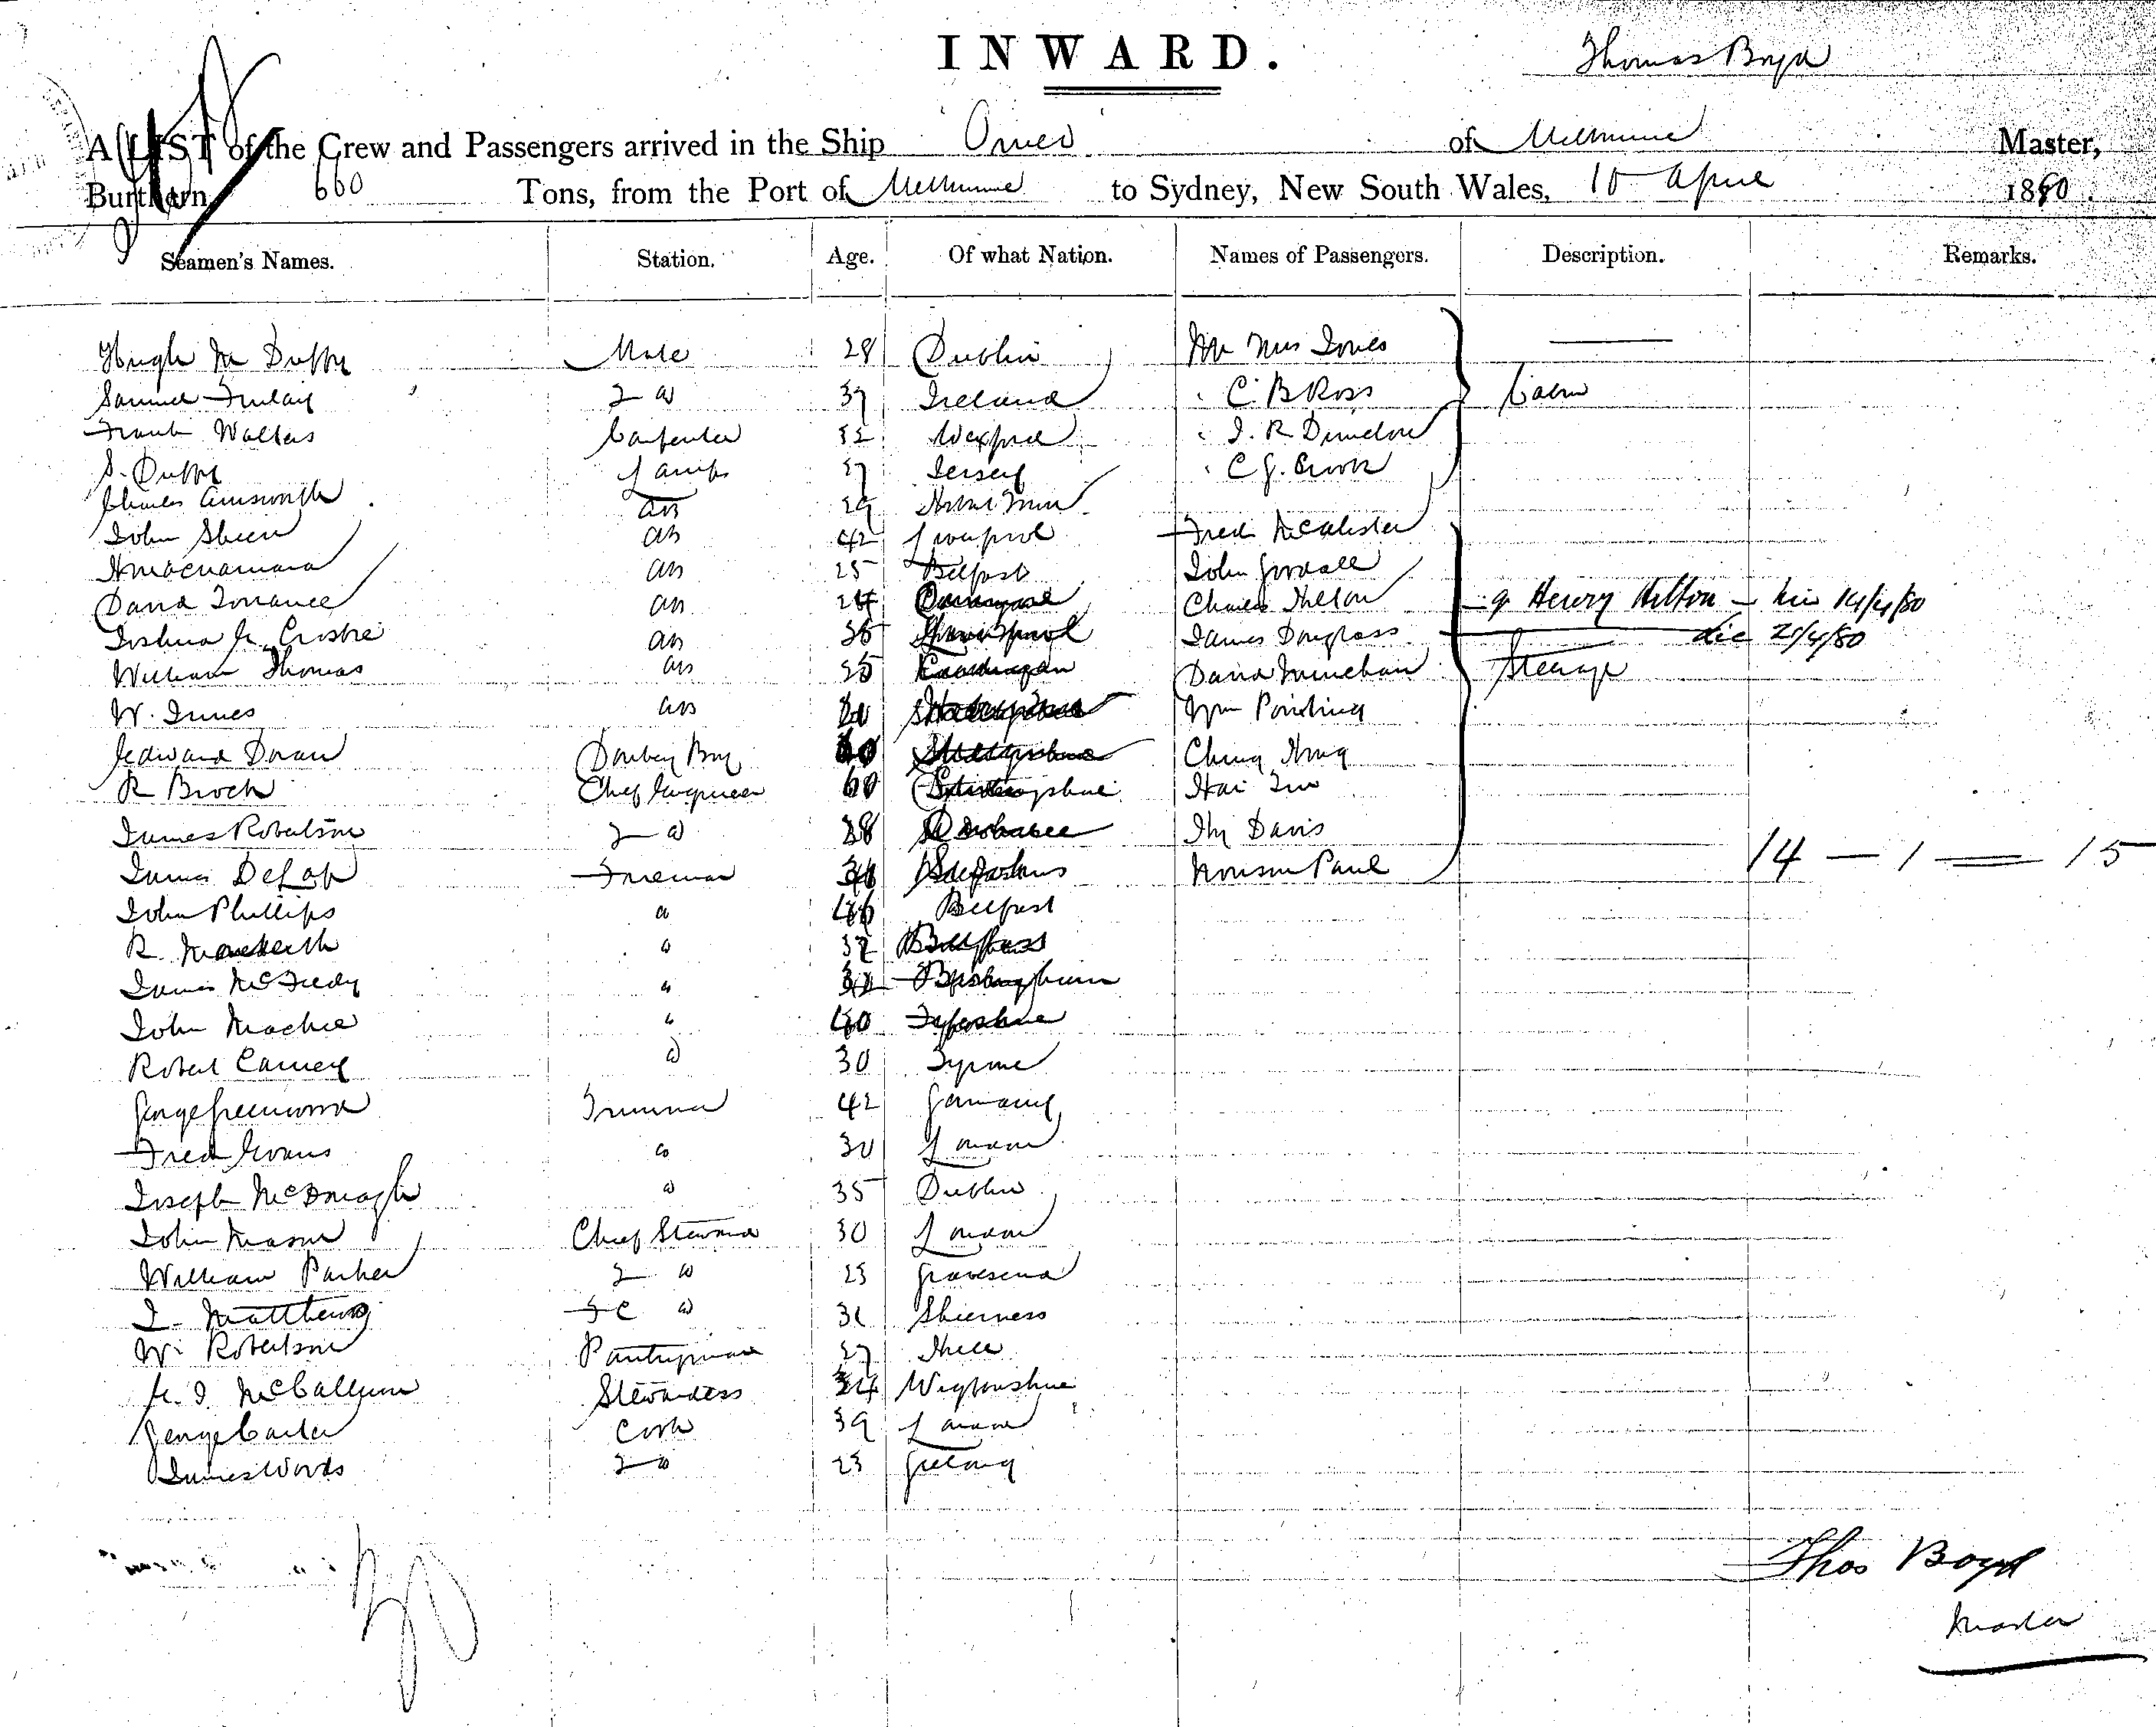 INWARD.
Thomas Boyd
A LIST of the Crew and Passengers arrived in the Ship Omeo of Melbourne Master,
Burthern 660 Tons, from the Port of Melbourne to Sydney, New South Wales, 10 April 1880
Seamen's Names. Station. Age. Of what Nation. Names of Passengers. Description. Remarks.
Hugh Mc Duffy Mate 28 Dublin Mr Mrs Jones
Samuel Finlay 2 do 37 Ireland " C. B Ross Cabin
Frank Walters Carpenter 32 Wexford " J. R
S. Duffy Lamps 37 Jersey " C J.
Charles Ainsworth AB 29 Hobart Town
John Sheen AB 42 Liverpool Fred McAlister
H Macnamara AB 25 Belfast John Goodall
David Torrance AB 24 Charles Hilton or Henry Hilton - 14/4/80
Joshua Mc Croskie AB 35 James Douglass 21/4/80
William Thomas AB 25 Cardigan David Minehan Steerage
W. Innes AB Wm
Edward Doran Donkey Boy 40 Ching Hong
R Brock Chief Engineer 60 Stirlingshire Hai
James Robertson 2 do 38 Hy Davis
James DeLap Fireman Paul 14 — 1 — 15
John Phillips do 46 Belfast
R. do 32 Belfast
James McFredy do
John Mackie do 40 Fifeshire
Robert Carney do 30 Tyrone
George Greenwood Trimmer 42 Germany
Fred Evans do 30 London
Joseph McDonagh do 35 Dublin
John Mason Chief Steward 30 London
William Parker 2 do 23 Gravesend
J. Matthews F C do 31 Sheerness
W. Robertson Pantryman 27 Hull
McCallum Stewardess 34 Wigtonshire
George Carter Cook 39 London
James Woods 2 do 23 Geelong
30
Thos Boyd
Master